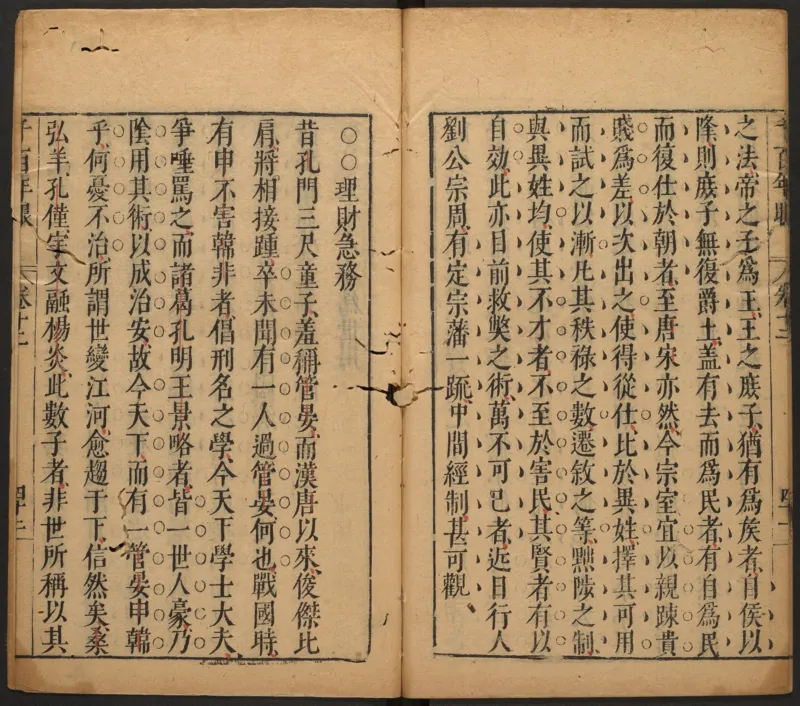 之法帝之子爲王王之庶子猶有爲矦者自侯以
降則庶子無復爵土盖有去而爲民者有自爲民
而復仕於朝者至唐宋亦然今宗室宜以親踈貴
賤爲差以次出之使得從仕比於異姓擇其可用
而試之以漸凡其秩祿之數遷敘之等黜陟之制
與異姓均使其不才者不至於害民其賢者有以
自效此亦目前救獘之術萬不可已者近日行人
劉公宗周有定宗藩一䟽中間經制甚可觀
千百年眼
卷十二
○○理財急務
昔孔門三尺童子羞稱管晏而漢唐以來俊傑比
肩將相接踵卒未聞有一人過管晏何也戰國時
有申不害韓非者倡刑名之學今天下學士大夫
爭唾罵之而諸葛孔明王景略者皆一世人豪乃
陰用其術以成治安故今天下而有一管晏申韓
乎何憂不治所謂世變江河愈趨于下信然矣桑
弘羊孔僅宇文融楊炎此數子者非世所稱以其
千百年眼
卷十二